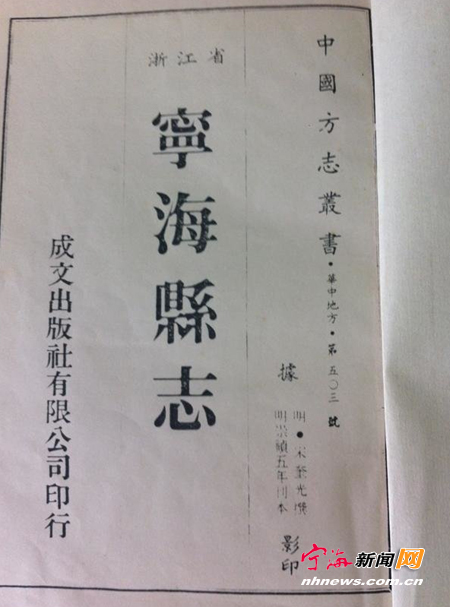 中國方志叢書·華中地方·第五〇三號
據
明·宋奎光撰
明崇禎五年刊本
影印
浙江省
寧海縣志
成文出版社有限公司印行
宁海新闻网
nhnews.com.cn